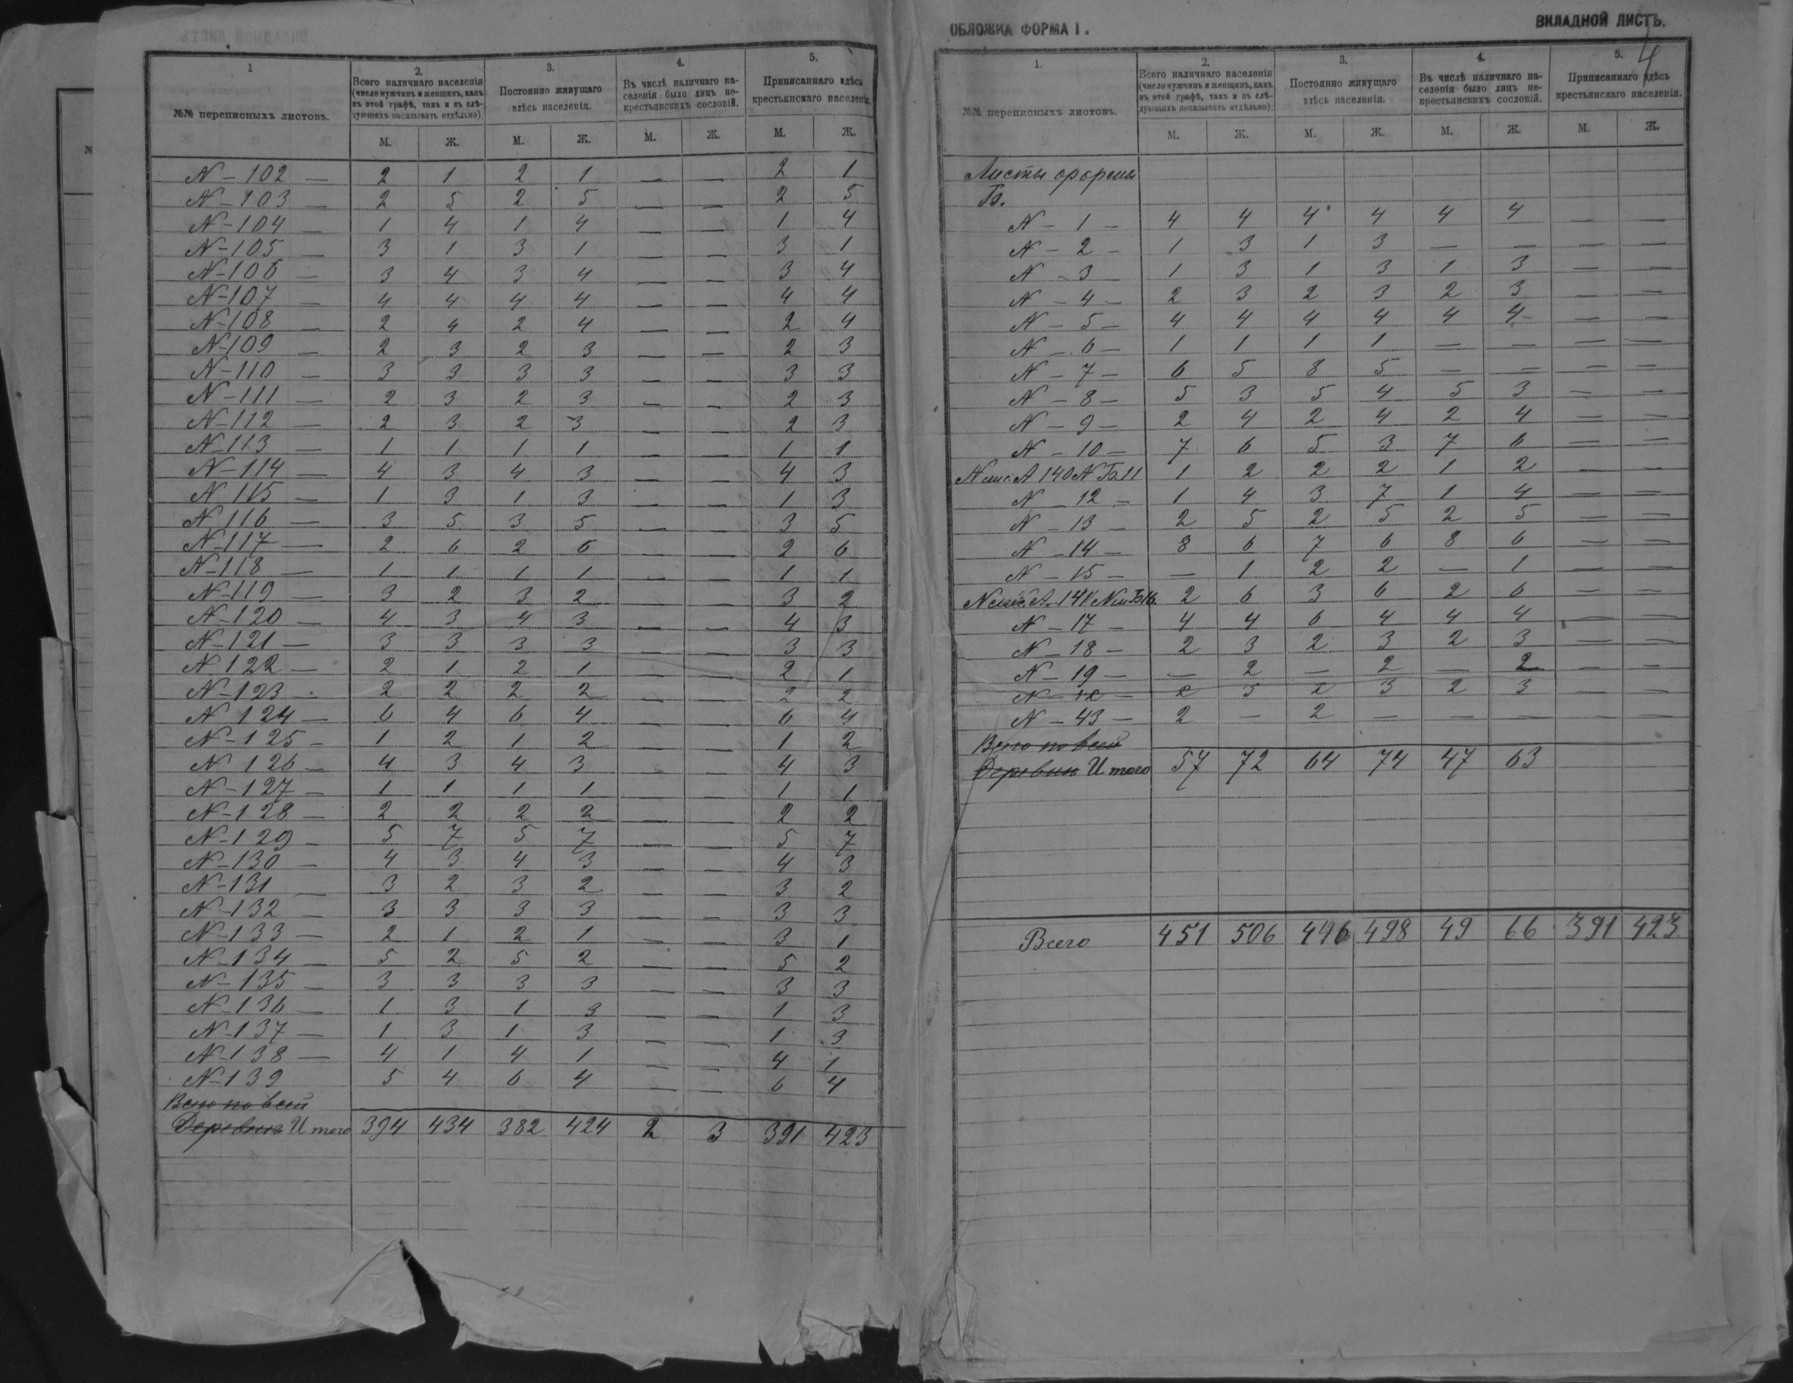 1
2.
3.
4.
5.
№№ переписныхъ листовъ.
Всего наличнаго населенія (число мужчинъ и женщинъ, какъ въ этой графѣ, такъ и въ слѣдующихъ показывать отдѣльно).
Постоянно живущаго здѣсь населенія.
Въ числѣ наличнаго населенія было лицъ некрестьянскихъ сословій.
Приписаннаго здѣсь крестьянскаго населенія.
М. Ж. М. Ж. М. Ж. М. Ж.
N – 102 — 2 1 2 1 — — 2 1
N – 103 — 2 5 2 5 — — 2 5
N – 104 — 1 4 1 4 — — 1 4
N – 105 — 3 1 3 1 — — 3 1
N – 106 — 3 4 3 4 — — 3 4
N – 107 — 4 4 4 4 — — 4 4
N – 108 — 2 4 2 4 — — 2 4
N – 109 — 2 3 2 3 — — 2 3
N – 110 — 3 3 3 3 — — 3 3
N – 111 — 2 3 2 3 — — 2 3
N – 112 — 2 3 2 3 — — 2 3
N – 113 — 1 1 1 1 — — 1 1
N – 114 — 4 3 4 3 — — 4 3
N 115 — 1 3 1 3 — — 1 3
N 116 — 3 5 3 5 — — 3 5
N – 117 — 2 6 2 6 — — 2 6
N – 118 — 1 1 1 1 — — 1 1
N – 119 — 3 2 3 2 — — 3 2
N – 120 — 4 3 4 3 — — 4 3
N – 121 — 3 3 3 3 — — 3 3
N – 122 — 2 1 2 1 — — 2 1
N – 123 — 2 2 2 2 — — 2 2
N 124 — 6 4 6 4 — — 6 4
N – 125 — 1 2 1 2 — — 1 2
N 126 — 4 3 4 3 — — 4 3
N – 127 — 1 1 1 1 — — 1 1
N – 128 — 2 2 2 2 — — 2 2
N – 129 — 5 7 5 7 — — 5 7
N – 130 — 4 3 4 3 — — 4 3
N – 131 — 3 2 3 2 — — 3 2
N – 132 — 3 3 3 3 — — 3 3
N – 133 — 2 1 2 1 — — 3 1
N – 134 — 5 2 5 2 — — 5 2
N – 135 — 3 3 3 3 — — 3 3
N – 136 — 1 3 1 3 — — 1 3
N – 137 — 1 3 1 3 — — 1 3
N – 138 — 4 1 4 1 — — 4 1
N – 139 5 4 6 4 — — 6 4
Всего по всей
Деревнѣ Итого 394 434 382 424 2 3 391 423
ОБЛОЖКА ФОРМА I.
ВКЛАДНОЙ ЛИСТЪ.
4
1.
2.
3.
4.
5.
№№ переписныхъ листовъ.
Всего наличнаго населенія (число мужчинъ и женщинъ, какъ въ этой графѣ, такъ и въ слѣдующихъ показывать отдѣльно).
Постоянно живущаго здѣсь населенія.
Въ числѣ наличнаго населенія было лицъ некрестьянскихъ сословій.
Приписаннаго здѣсь крестьянскаго населенія.
М. Ж. М. Ж. М. Ж. М. Ж.
Листы формы
Б.
N – 1 – 4 4 4 4 4 4 — —
N – 2 – 1 3 1 3 — — — —
N – 3 1 3 1 3 1 3 — —
N – 4 – 2 3 2 3 2 3 — —
N – 5 – 4 4 4 4 4 4 — —
N – 6 – 1 1 1 1 — — — —
N – 7 – 6 5 8 5 — — — —
N – 8 – 5 3 5 4 5 3 — —
N – 9 – 2 4 2 4 2 4 — —
N – 10 – 7 6 5 3 7 6 — —
N лис А 140 N Б 11 1 2 2 2 1 2 — —
N – 12 – 1 4 3 7 1 4 — —
N – 13 – 2 5 2 5 2 5 — —
N – 14 – 8 6 7 6 8 6 — —
N – 15 – — 1 2 2 — 1 — —
2 6 3 6 2 6 — —
N – 17 – 4 4 6 4 4 4 — —
N – 18 – 2 3 2 3 2 3 — —
N – 19 – — 2 — 2 — 2 — —
3 2 3 — —
N – 43 – 2 — 2 — — — — —
Всего по всей
Деревнѣ Итого 57 72 64 74 47 63
Всего 451 506 446 498 49 66 391 423